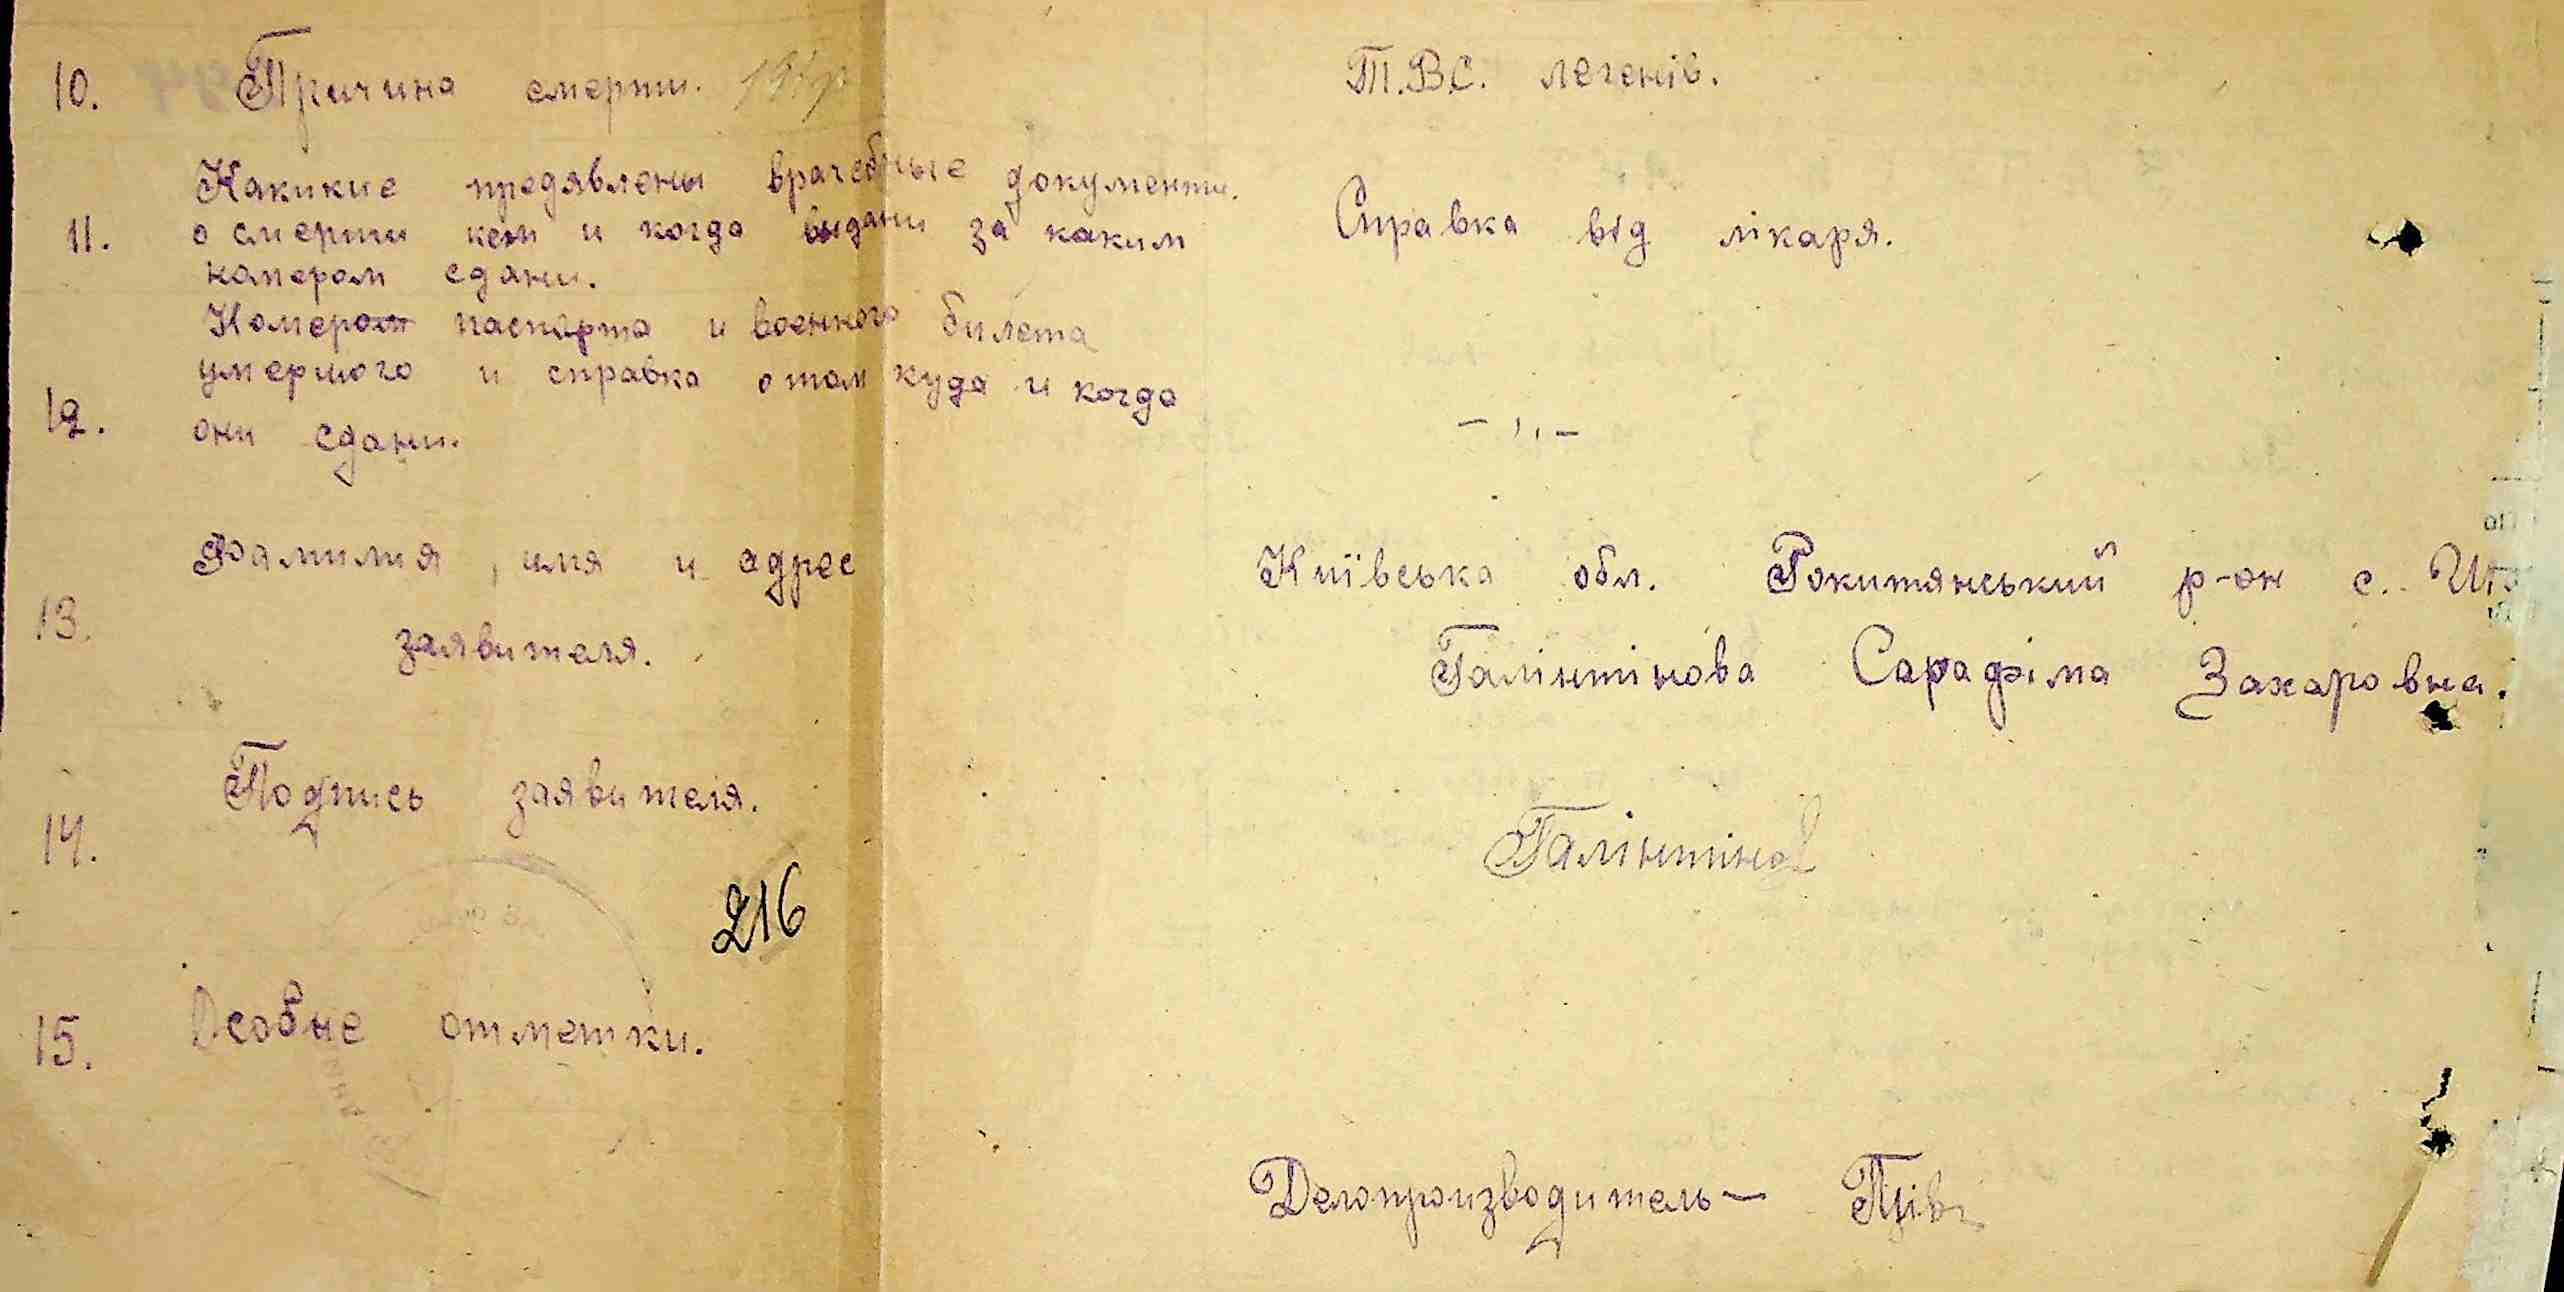 10. Причина смерти. Т.В.С. легенів.
Какикие предявлены врачебные документи.
11. о смерти кем и когда выдани за каким Справка від лікаря.
номером сдани.
Номером паспорта и военного билета
умершого и справка о том куда и когда
12. они сдани. – ,, –
Фамилия, имя и адрес Київська обл. Рокитянський р-он с.
13. заявителя. Галінтінова Сарафіма Захаровна.
14. Подпись заявителя. Галінтінов
216
15. Особые отметки.
Делопроизводитель –